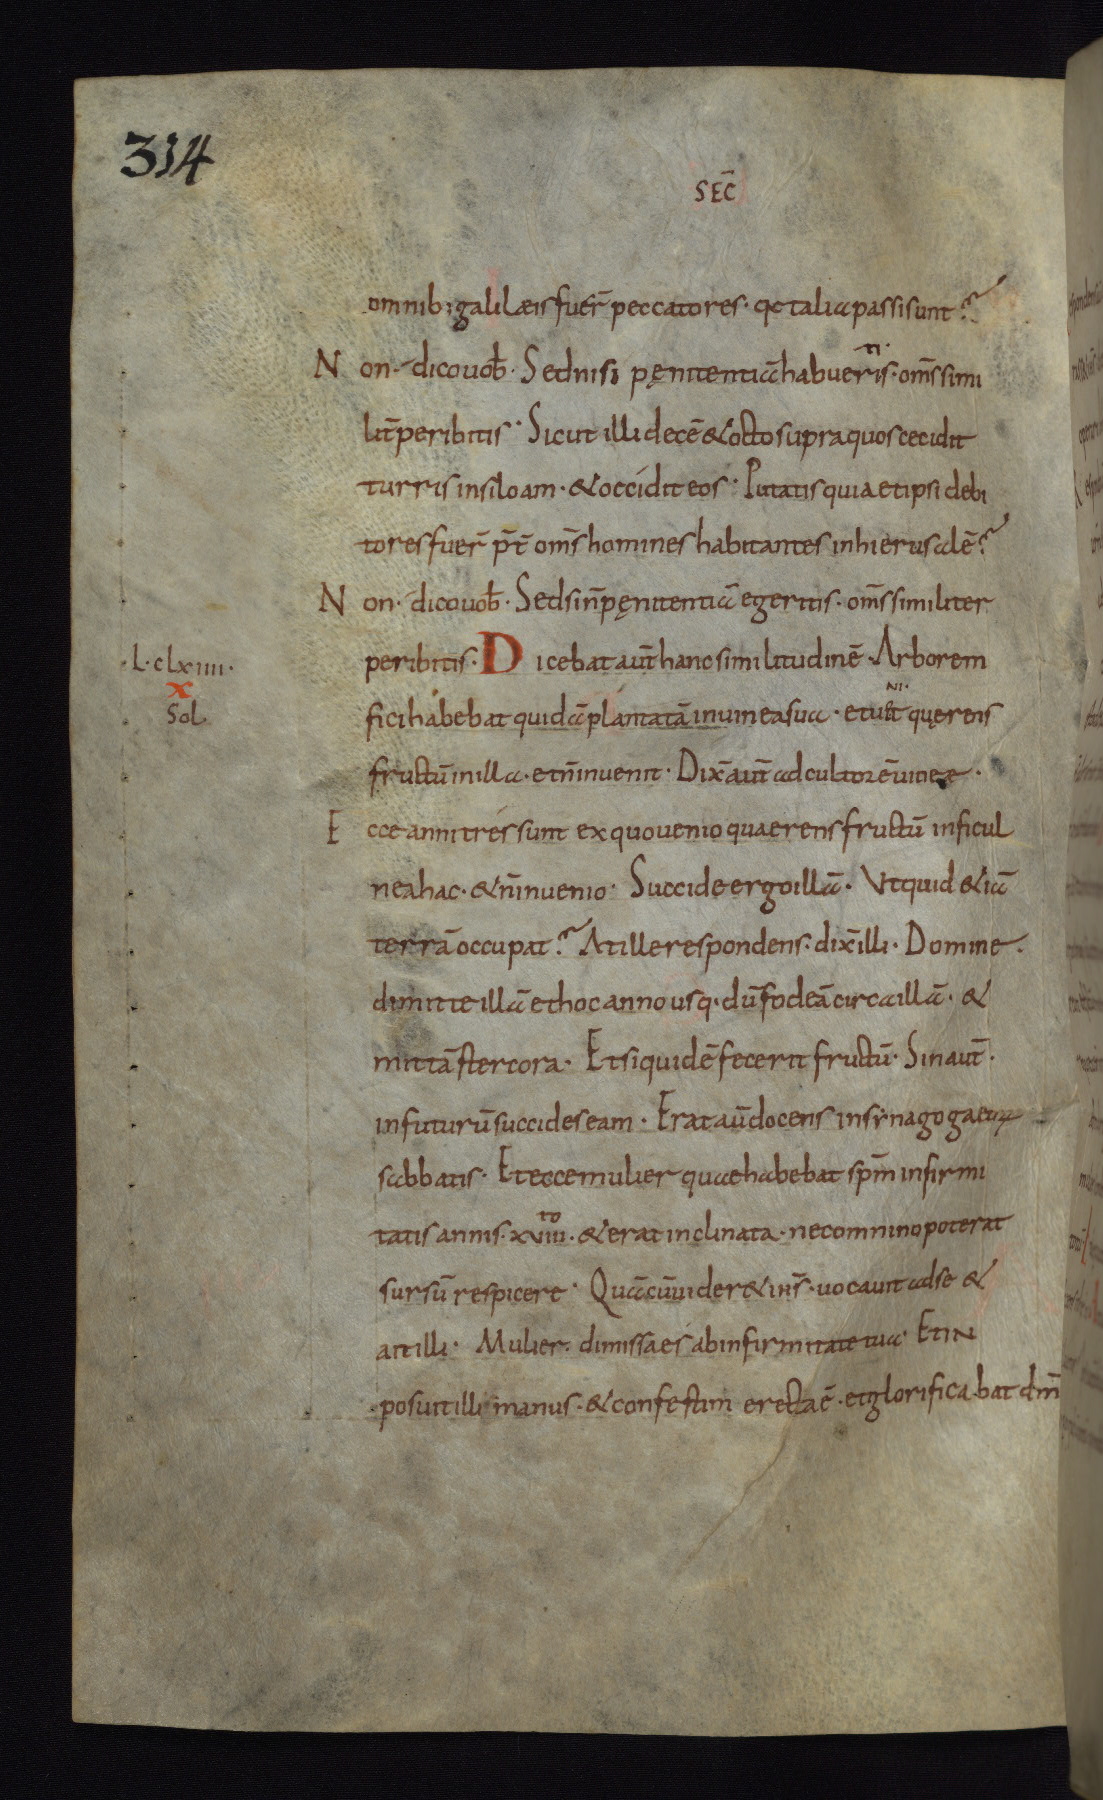 314
SEC̄
omnib; galilæis fuer̄ peccatores · q̄a talia passi sunt?
Non · dico uob̄ · Sed nisi pęnitentiā habueritis · om̄s simi
lit̄ peribitis · Sicut illi decē & octo supra quos cecidit
turris in siloam · & occidit eos · Putatis quia et ipsi debi
tores fuer̄ p̄t om̄s homines habitantes in hierusalē?
Non · dico uob̄ · Sed si n̄ pęnitentiā egeritis · om̄s similiter
peribitis · Dicebat aūt hanc similitudinē · Arborem
L · clxiiii ·
x
Sol
fici habebat quidā plantatā in uinea sua · et uenit quęrens
fructū in illa · et n̄ inuenit · Dix̄ aūt ad cultorē uineę ·
Ecce anni tres sunt ex quo uenio quaerens fructū in ficul
nea hac · & n̄ inuenio · Succide ergo illā · Vt quid & iā
terrā occupat? At ille respondens · dix̄ illi · Domine ·
dimitte illā et hoc anno usq · dū fodeā circa illā · &
mittā stercora · Et siquidē fecerit fructū · Sin aūt ·
in futurū succides eam · Erat aū docens in synagoga eoꝝ
sabbatis · Et ecce mulier quae habebat sp̄m infirmi
tatis annis · xuiii to · & erat inclinata · nec omnino poterat
sursū respicere · Quā cū uider& ih̄s · uocauit ad se &
ait illi · Mulier · dimissa es ab infirmitate tua · Et in
posuit illi manus · & confestim erecta ē · et glorificabat dm̄